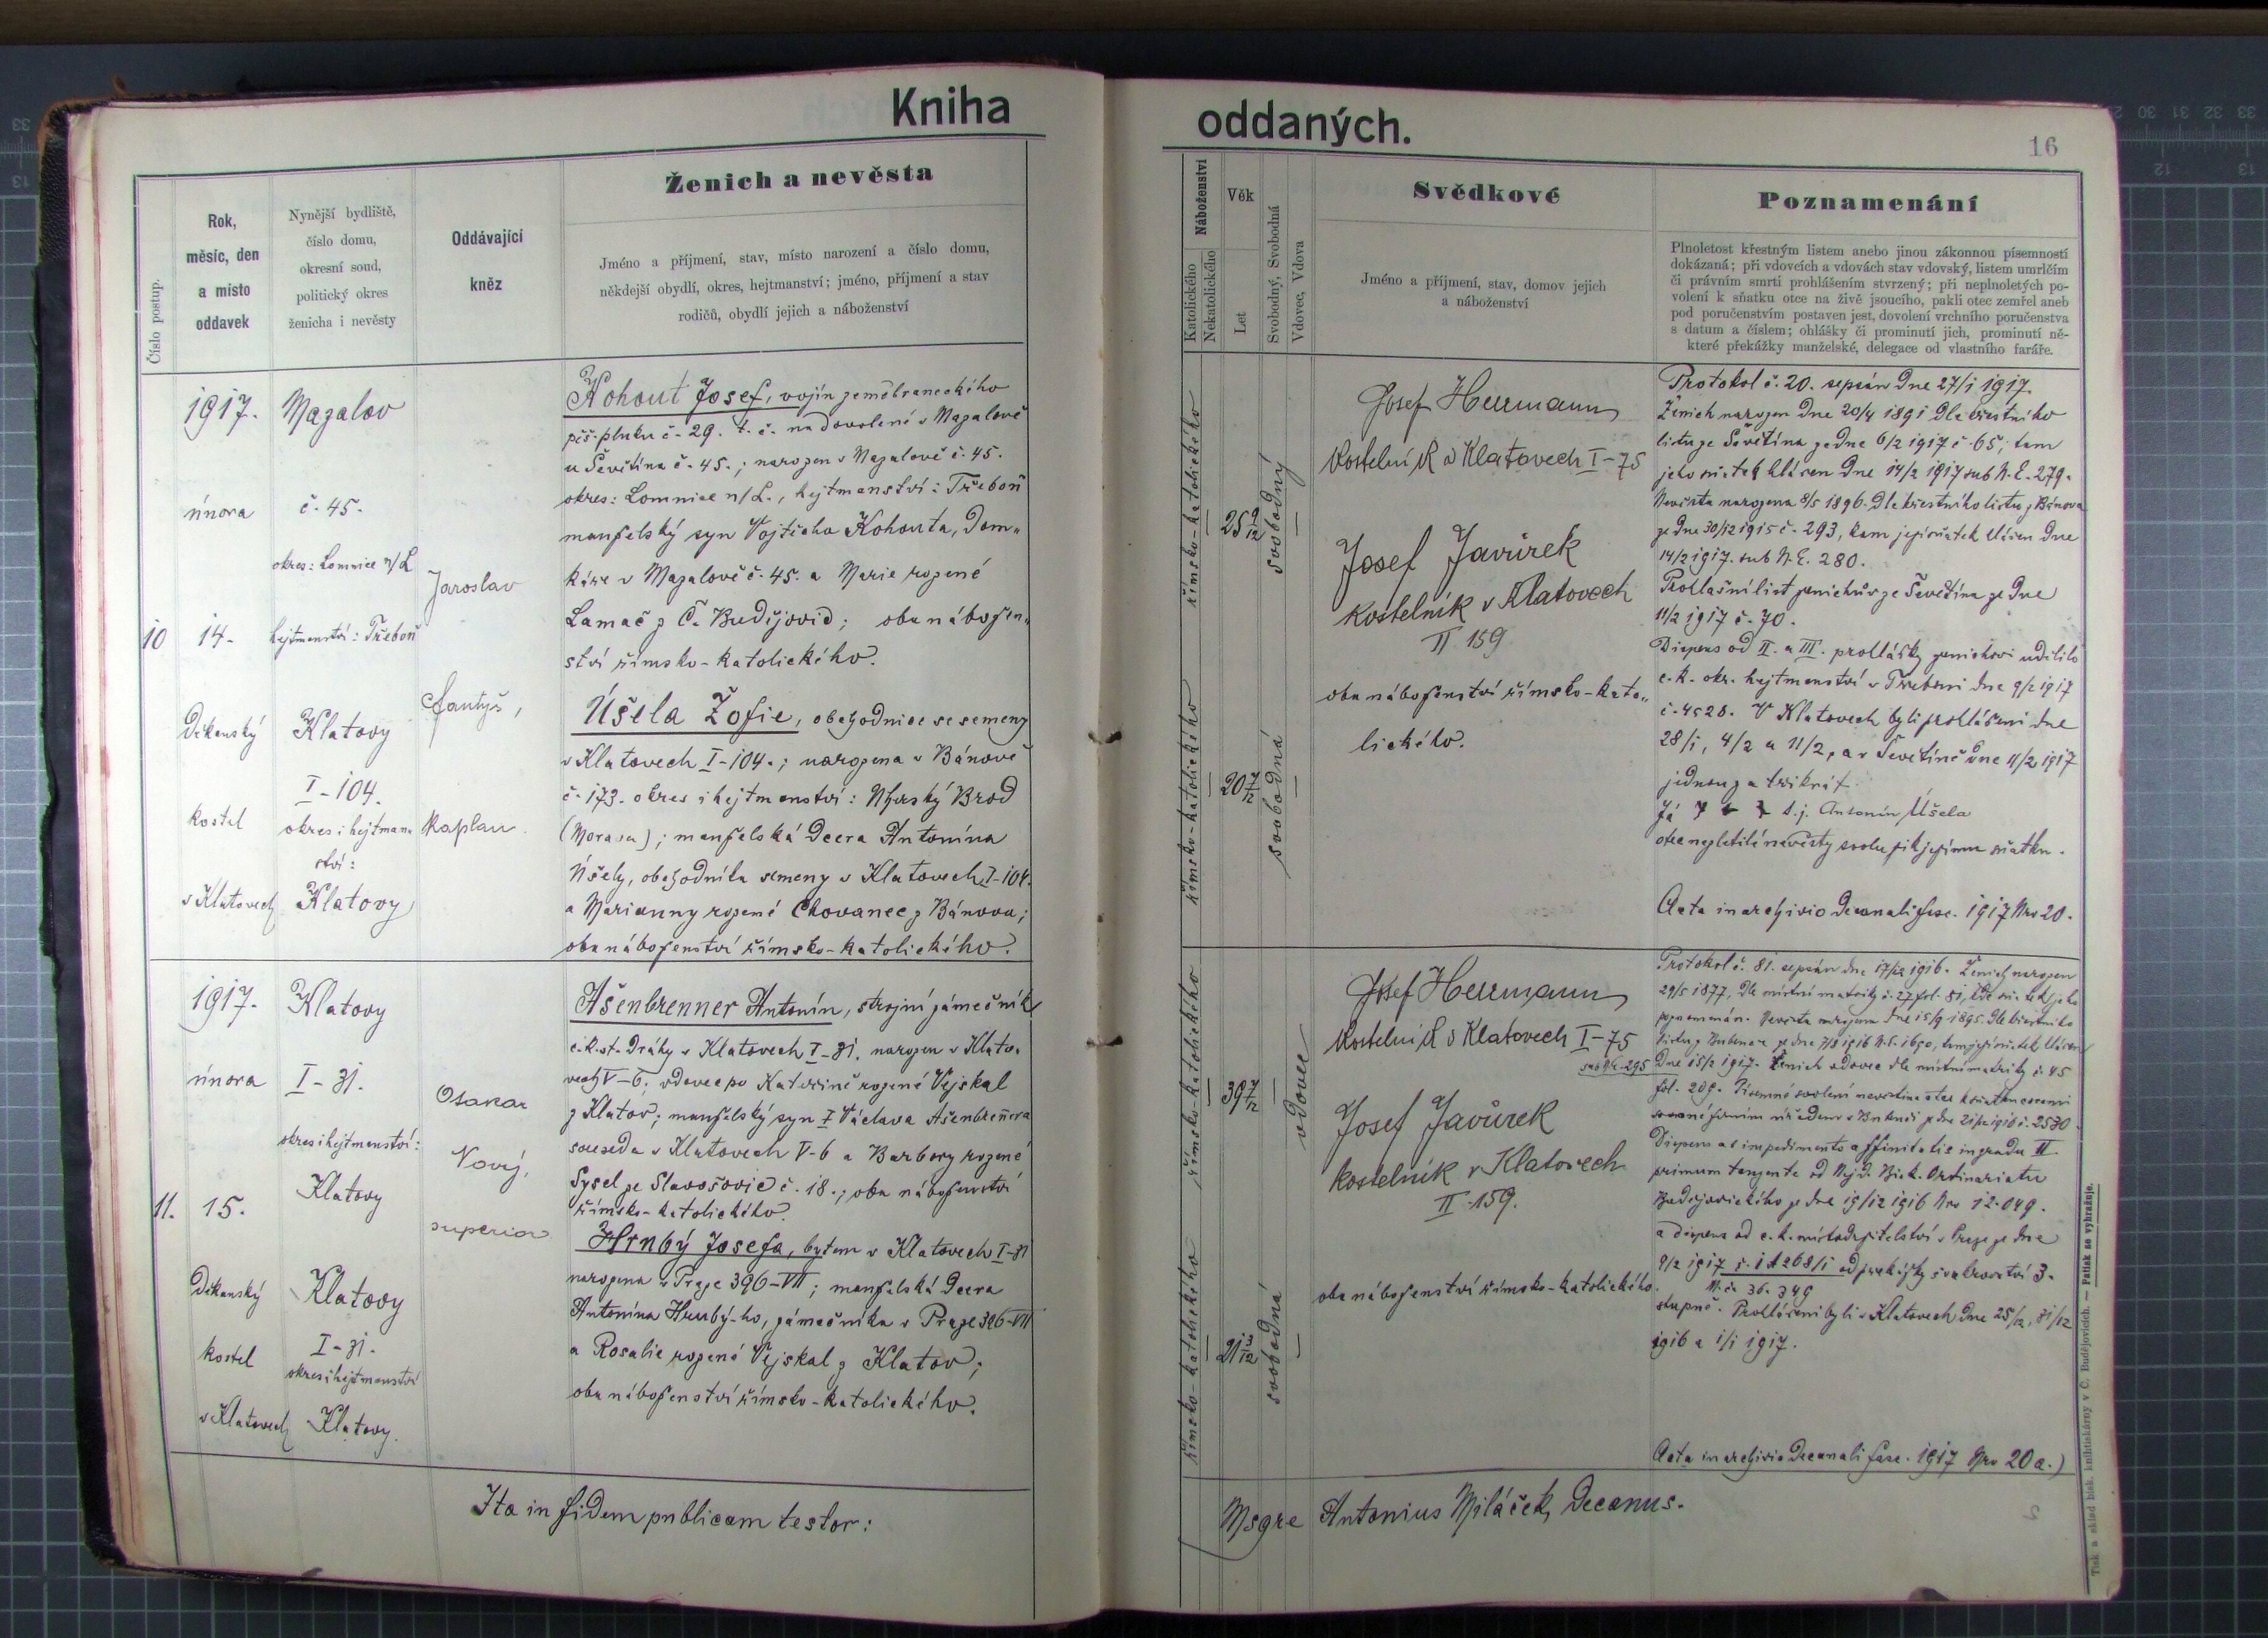 Kniha
oddaných.
16
Číslo postup.
Rok,
měsíc, den
a místo
oddavek
Nynější bydliště,
číslo domu,
okresní soud,
politický okres
ženicha i nevěsty
Oddávající
kněz
Ženich a nevěsta
Jméno a příjmení, stav, místo narození a číslo domu,
někdejší obydlí, okres, hejtmanství; jméno, příjmení a stav
rodičů, obydlí jejich a náboženství
Náboženství
Katolického
Nekatolického
Věk
Let
Svobodný, Svobodná
Vdovec, Vdova
Svědkové
Jméno a příjmení, stav, domov jejich
a náboženství
Poznamenání
Plnoletost křestným listem anebo jinou zákonnou písemností
dokázaná; při vdovcích a vdovách stav vdovský, listem umrlčím
či právním smrti prohlášením stvrzený; při neplnoletých po-
volení k sňatku otce na živě jsoucího, pakli otec zemřel aneb
pod poručenstvím postaven jest, dovolení vrchního poručenstva
s datum a číslem; ohlášky či prominutí jich, prominutí ně-
které překážky manželské, delegace od vlastního faráře.
10
1917.
února
14.
Děkanský
kostel
v Klatovech
Mazalov
č. 45.
okres: Lomnice n/L
hejtmanství: Třeboň
Klatovy
I-104.
okres i hejtman
ství:
Klatovy
Jaroslav
kaplan.
Kohout Josef, vojín zeměbraneckého
pěš. pluku č. 29. t. č. na dovolené v Mazalově
u Ševětína č. 45.; narozen v Mazalově č. 45.
okres: Lomnice n/L., hejtmanství: Třeboň
manželský syn Vojtěcha Kohouta, dom„
káře v Mazalově č. 45. a Marie rozené
Lamač z Č. Budějovic; oba nábožen„
ství římsko-katolického.
Úšela Žofie, obchodnice se semeny
v Klatovech I-104.; narozena v Bánově
č. 173. okres i hejtmanství: Uherský Brod
(Morava); manželská dcera Antonína
Úšely, obchodníka semeny v Klatovech I-104.
a Marianny rozené Chovanec z Bánova;
oba náboženství římsko-katolického.
římsko-katolického
25 9/12
svobodný
římsko-katolického
20 7/12
svobodná
Josef Herrmann
kostelník v Klatovech I-75
Josef Javůrek
kostelník v Klatovech
II 159
oba náboženství římsko-kato„
lického.
Protokol č. 20. sepsán dne 27/1 1917.
Ženich narozen dne 20/4 1891 dle křestního
listu ze Ševětína ze dne 6/2 1917 č. 65, kam
jeho sňatek hlášen dne 14/2 1917 sub N. E. 279.
Nevěsta narozena 8/5 1896. Dle křestního listu z Bánova
ze dne 30/12 1915 č. 293, kam její sňatek hlášen dne
14/2 1917. sub N. E. 280.
Prohlašní list ženichův ze Ševětína ze dne
11/2 1917 č. 70.
Dispens od II. a III. prohlášky ženichovi udělilo
c. k. okr. hejtmanství v Třeboni dne 9/2 1917
č. 4528. V Klatovech byli prohlášeni dne
28/1, 4/2 a 11/2, a v Ševětíně dne 11/2 1917
jednou za třikrát.
Já + + + t. j. Antonín Úšela
otec nezletilé nevěsty svoluji k jejímu sňatku.
Acta in archivio decanali fasc. 1917 Nro 20.
11.
1917.
února
15.
Děkanský
kostel
v Klatovech
Klatovy
I-31.
okres i hejtmanství:
Klatovy
Klatovy
I-31.
okres i hejtmanství
Klatovy.
Otakar
Nový,
superior
Ašenbrenner Antonín, strojní zámečník
c. k. st. dráhy v Klatovech I-31. narozen v Klato-
vech V-6; vdovec po Kateřině rozené Vejskal
z Klatov; manželský syn † Václava Ašenbrennera
souseda v Klatovech V-6 a Barbory rozené
Sysel ze Slavošovic č. 18.; oba náboženství
římsko-katolického.
Hrubý Josefa, bytem v Klatovech I-31
narozena v Praze 396-VII; manželská dcera
Antonína Hrubý-ho, zámečníka v Praze 396-VII
a Rosalie rozené Vejskal z Klatov;
oba náboženství římsko-katolického.
římsko-katolického
39 7/12
vdovec
římsko-katolického
21 3/12
svobodná
Josef Herrmann
kostelník v Klatovech I-75
Josef Javůrek
kostelník v Klatovech
II-159.
oba náboženství římsko-katolického.
Protokol č. 81. sepsán dne 17/12 1916. Ženich narozen
29/5 1877, dle místní matriky č. 27 fol. 81, kde sňatek jeho
poznamenán. Nevěsta narozena dne 15/9 1895. Dle křestního
listu z Bubenče ze dne 1916 N. E. 1650, kam její sňatek hlášen
sub N. E. 295 dne 15/2 1917. Ženich vdovec dle místní matriky č. 45
fol. 209. Písemné svolení nevěstina otce
Dispens ab impedimento affinitatis in gradu II.
primum tangente od Nejd. Bisk. Ordinariatu
Budějovického ze dne 19/12 1916 Nro 12.049.
a dispens od c. k. místodržitelství v Praze ze dne
9/2 1917 č. 1 A 268/1 od překážky švakrovství 3.
N. č. 36.349
stupně. Prohlášeni byli v Klatovech dne 25/12, 31/12
1916 a 1/1 1917.
Acta in archivio decanali fasc. 1917 Nro 20 a.)
Ita in fidem publicam testor:
Msgre Antonius Miláček, Decanus.
Tisk a sklad bisk. knihtiskárny v Č. Budějovicích. — Patisk se vyhražuje.